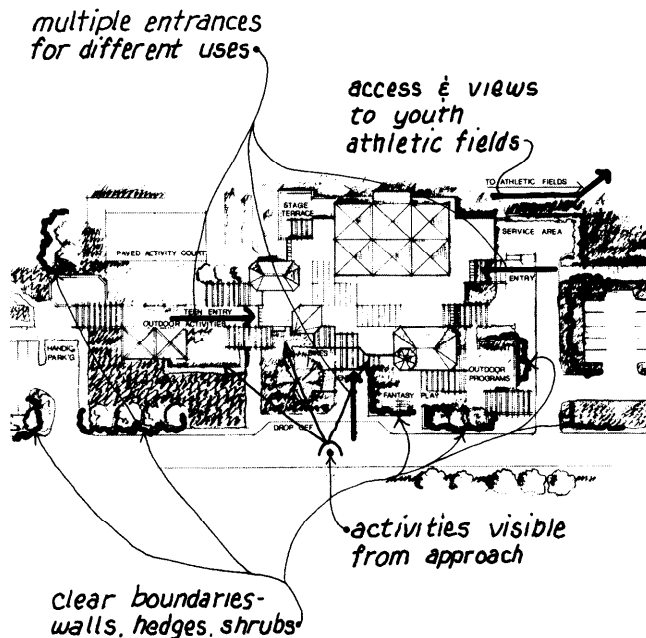 multiple entrances
for different uses
access & views
to youth
athletic fields
TO ATHLETIC FIELDS
STAGE
TERRACE
SERVICE AREA
PAVED ACTIVITY COURT
ENTRY
TEEN ENTRY
OUTDOOR ACTIVITIES
HANDIC.
PARK'G
BIKES
OUTDOOR
PROGRAMS
FANTASY PLAY
DROP OFF
activities visible
from approach
clear boundaries-
walls, hedges, shrubs